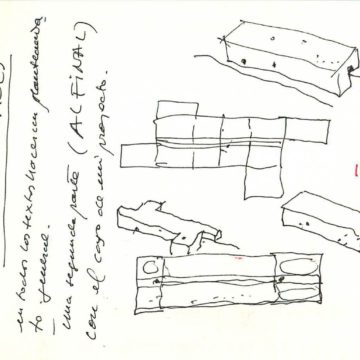 en todos los textos hacer un planteamien
to general.
una segunda parte (AL FINAL)
con el caso de mi proyecto.